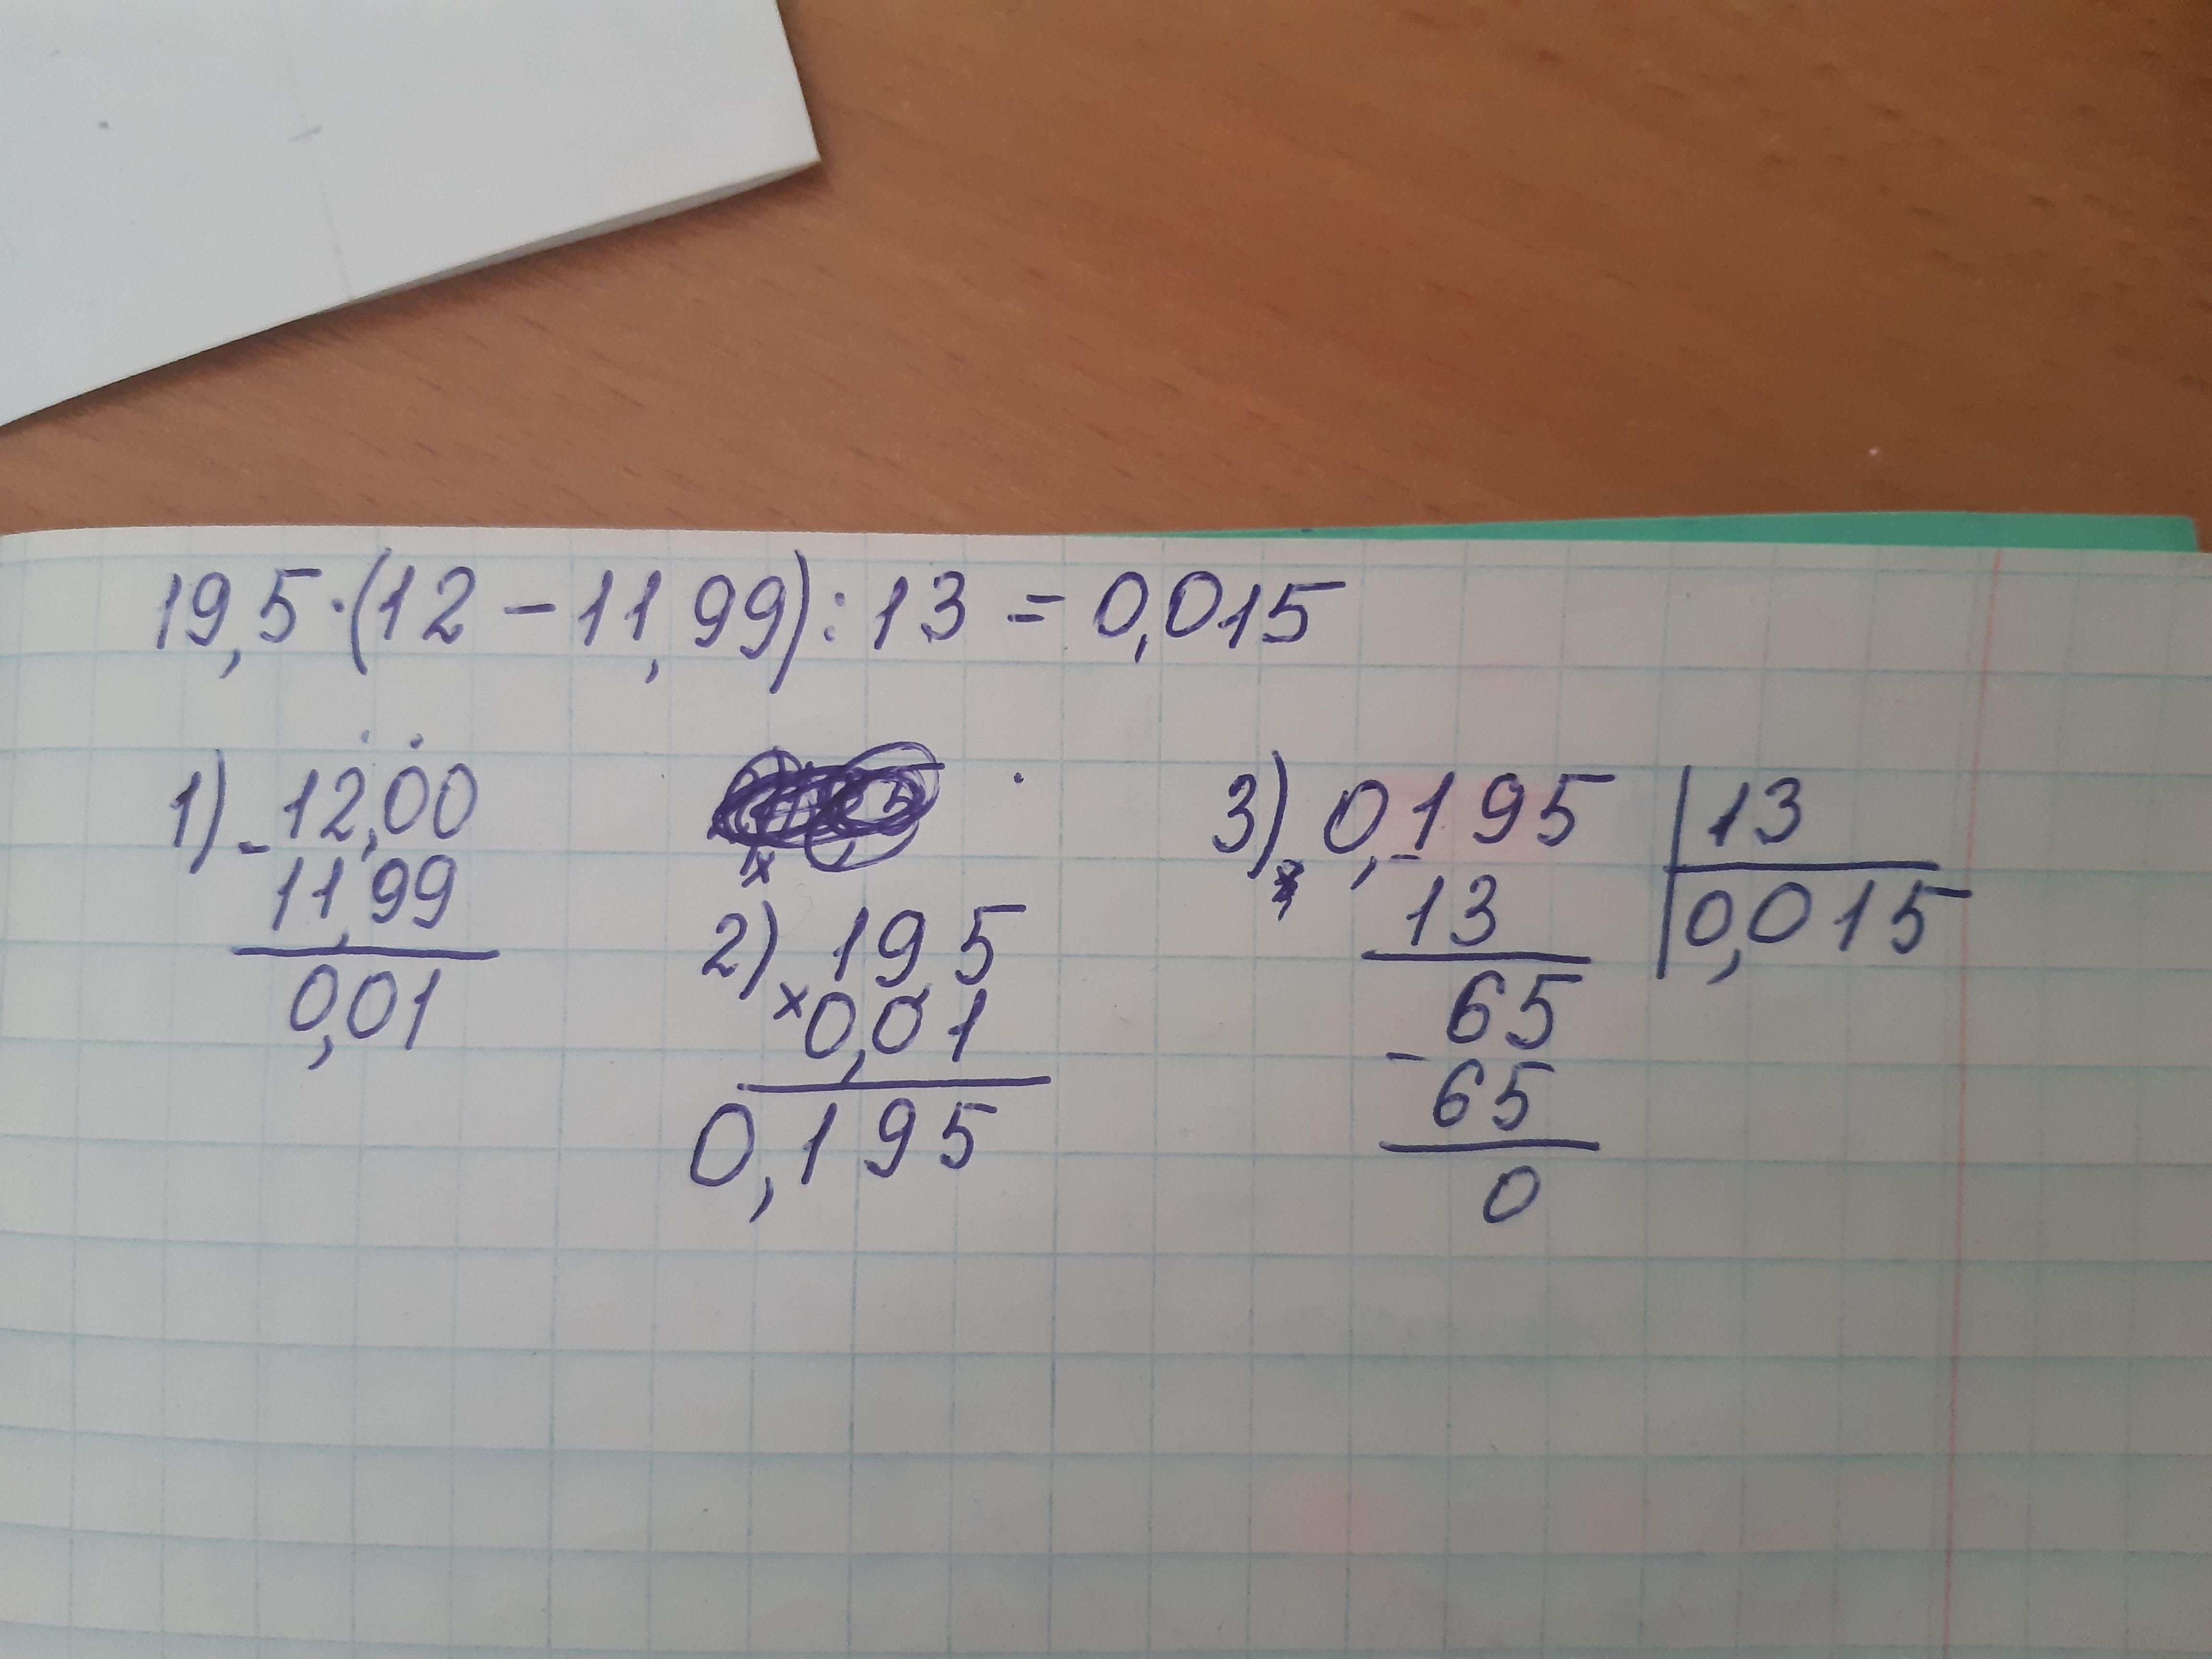 19,5·(12-11,99):13=0,015
1) -12,00
11,99
0,01
2) 19,5
×0,01
0,195
3) 0,195 | 13
-13 0,015
65
-65
0